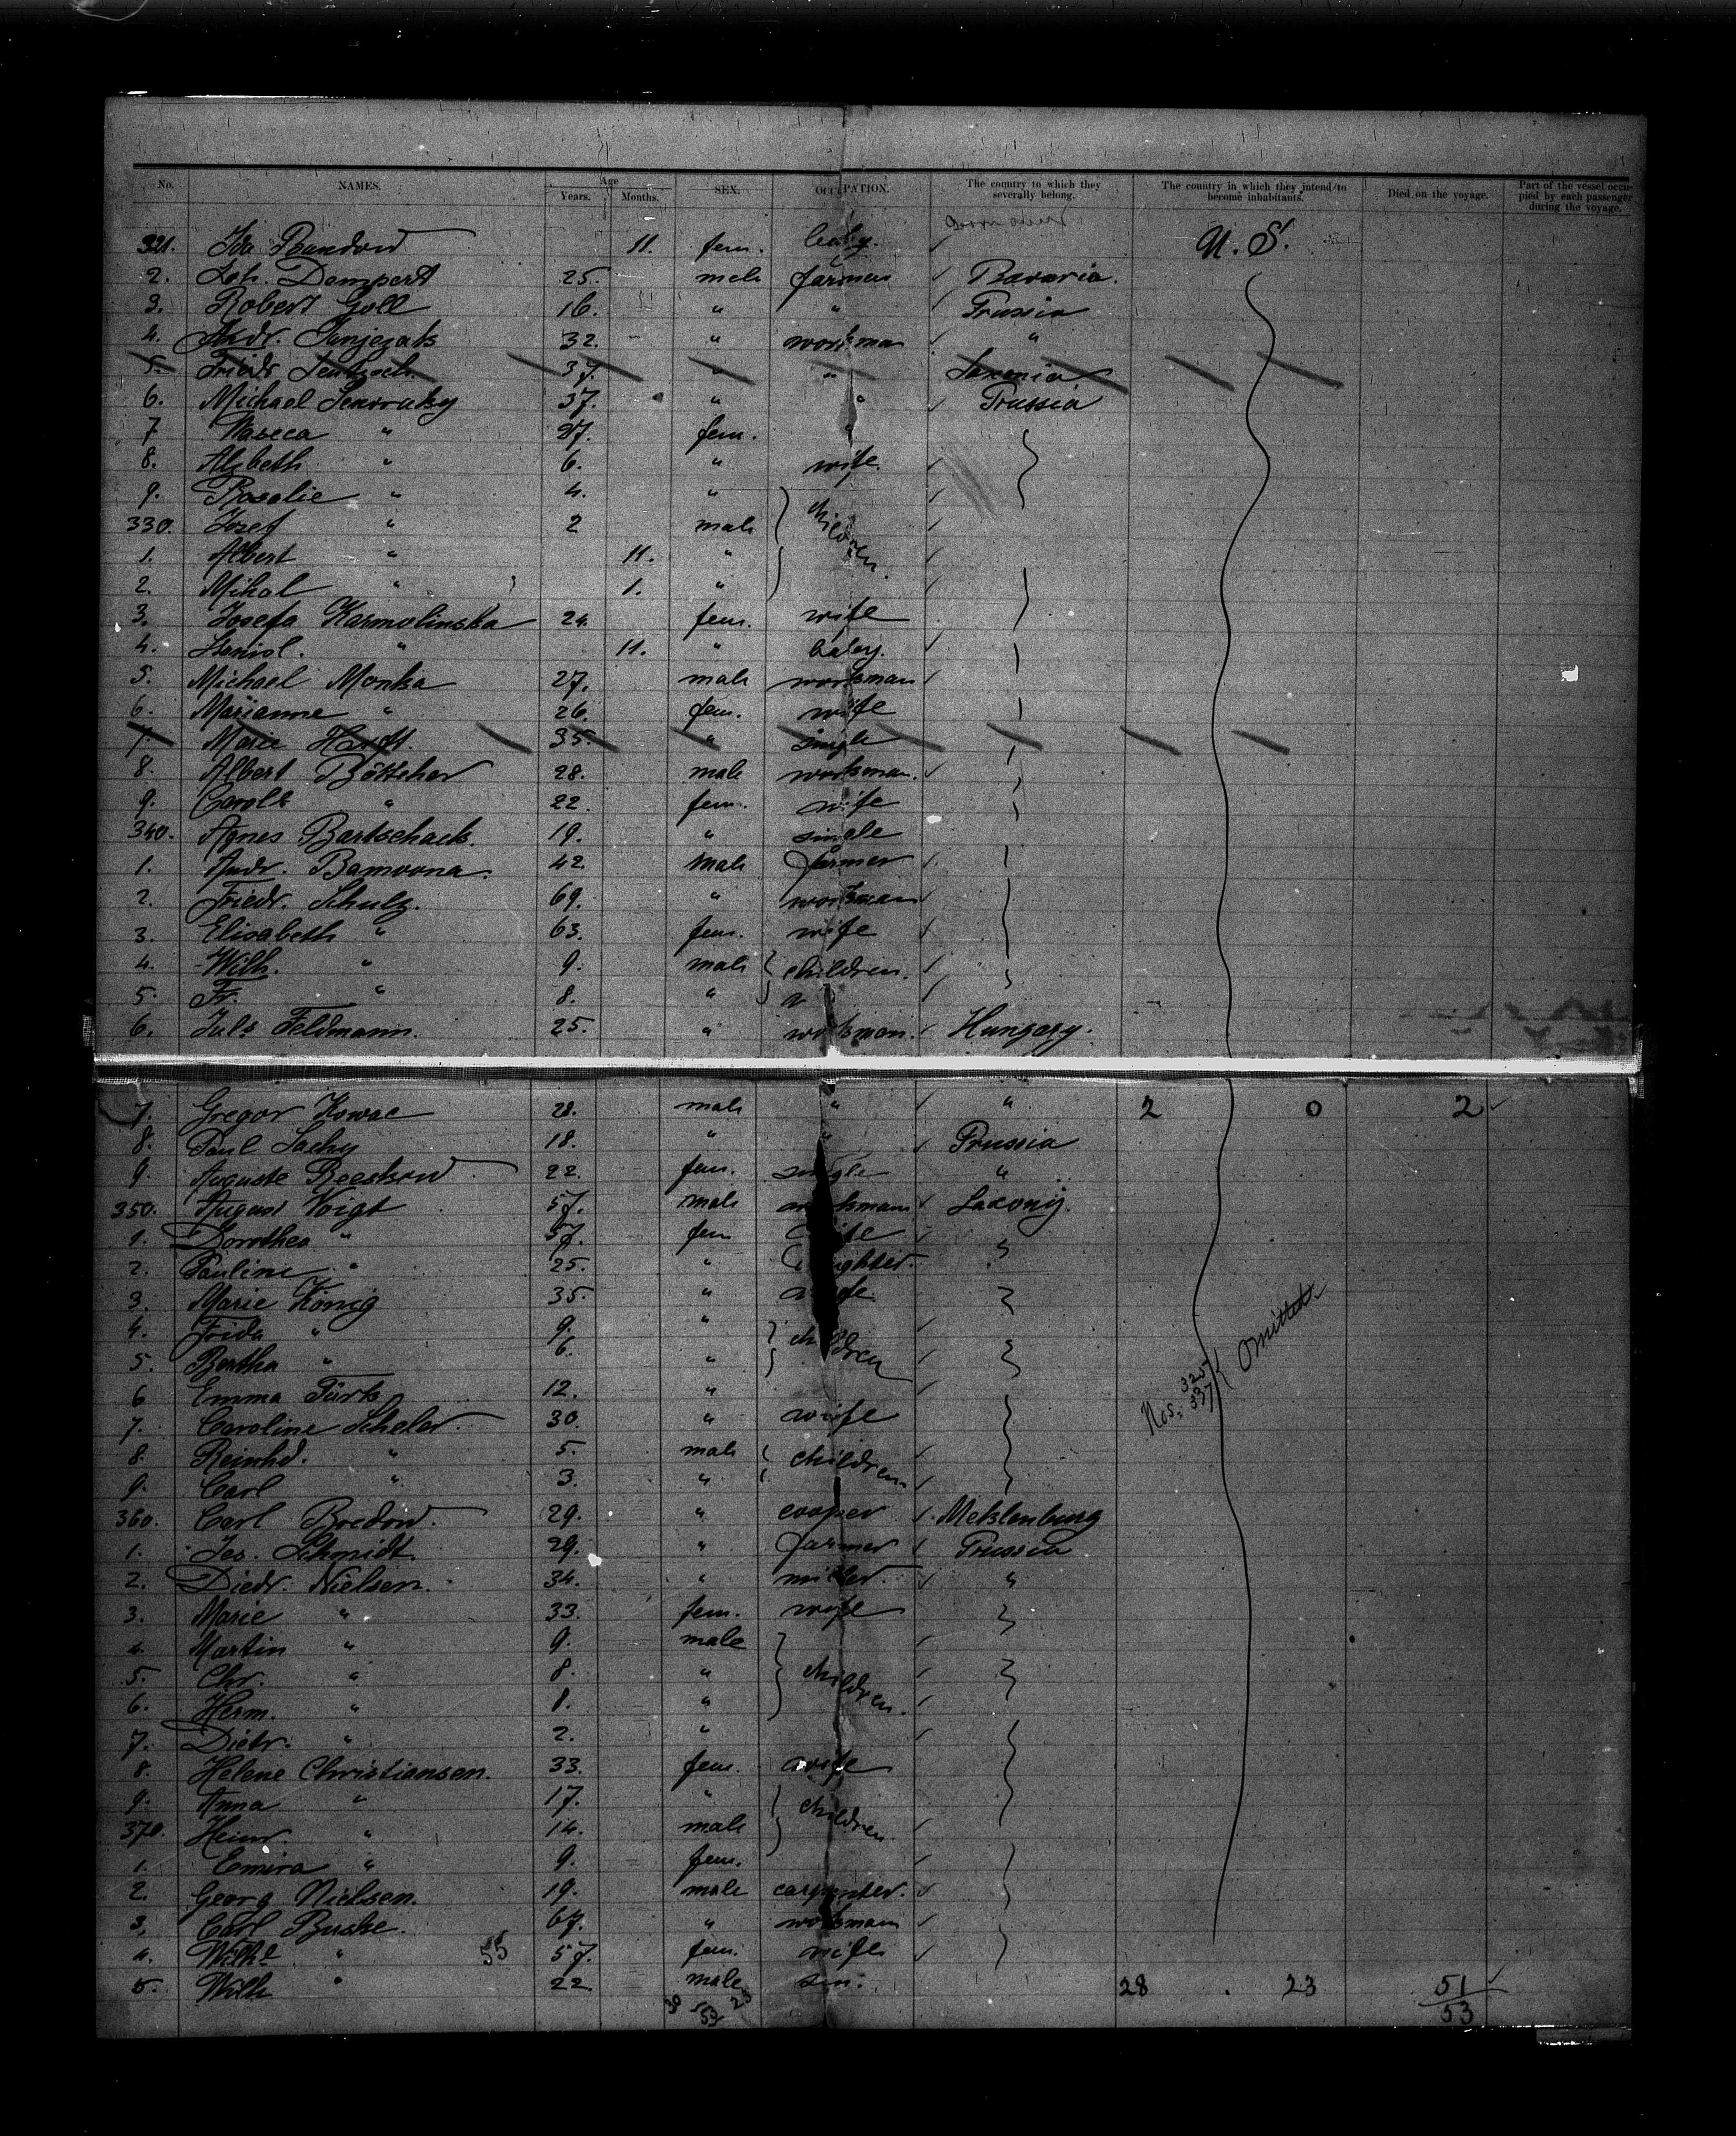 No. NAMES. Age Years. Months. SEX. OCCUPATION. The country to which they severally belong. The country in which they intend to become inhabitants. Died on the voyage. Part of the vessel occupied by each passenger during the voyage.
321. Ida Bandow 11. fem. baby. U. S.
2. Joh. Dempert 25. male farmer Bavaria.
3. Robert Goll 16. " " Prussia
4. Andr. 32. " workman "
5. Friedr 37. " " Saxonia
6. Michael 37. " " Prussia
7 " 27. fem. "
8. Alzbeth " 6. " wife.
9. Rosalie " 4. "
330. Jozef " 2 male children.
1. Albert " 11. "
2. Mihal " 1. "
3. Josefa Karmolinska 24. fem. wife
4. " 11. " baby.
5. Michael Monka 27. male workman
6. Marianne " 26. fem. wife
7. Marie 35. " single
8. Albert Böttcher 28. male workman.
9. Carol. " 22. fem. wife
340. Agnes Bartschack. 19. " single
1. Andr. Bamoona. 42. male farmer
2. Friedr. Schulz. 69. " workman
3. Elisabeth " 63. fem. wife
4. Wilh. " 9. male children.
5. Fr. " 8. "
6. Juls Feldmann. 25. " workman. Hungary.
7. Gregor Kowac 28. male " " 2 0 2
8. Paul Sachy 18. " " Prussia
9. Auguste Reeskow 22. fem. single "
350. August Voigt 57. male workman Saxony.
1. Dorothea " 57. fem wife
2. Pauline " 25. " daughter.
3. Marie König 35. " wife
4. Frida " 9. "
5. Bertha " 6. " children
Nos. 325 337 Omitted
6 Emma Türk 12. "
7. Caroline Scheler. 30. " wife
8. Reinhd. " 5. male children
9. Carl " 3. "
360. Carl Bredow. 29. " cooper Meklenburg
1. Jes. Schmidt 29. " farmer Prussia
2. Diedr. Nielsen. 34. " miller "
3. Marie " 33. fem. wife
4. Martin " 9. male
5. Chr. " 8. " children.
6. Herm. " 8. "
7. Dietr. " 2. "
8. Helene Christiansen. 33. fem. wife
9. Anna " 17. " children.
370. Heinr. " 14. male
1. Emira " 9. fem.
2. Georg Nielsen. 19. male carpenter.
3. Carl Buske. 67. " workman
4. " 55 57. fem. wife
5. Wilh " 22 male son. 28 23 51
30 53 23 53